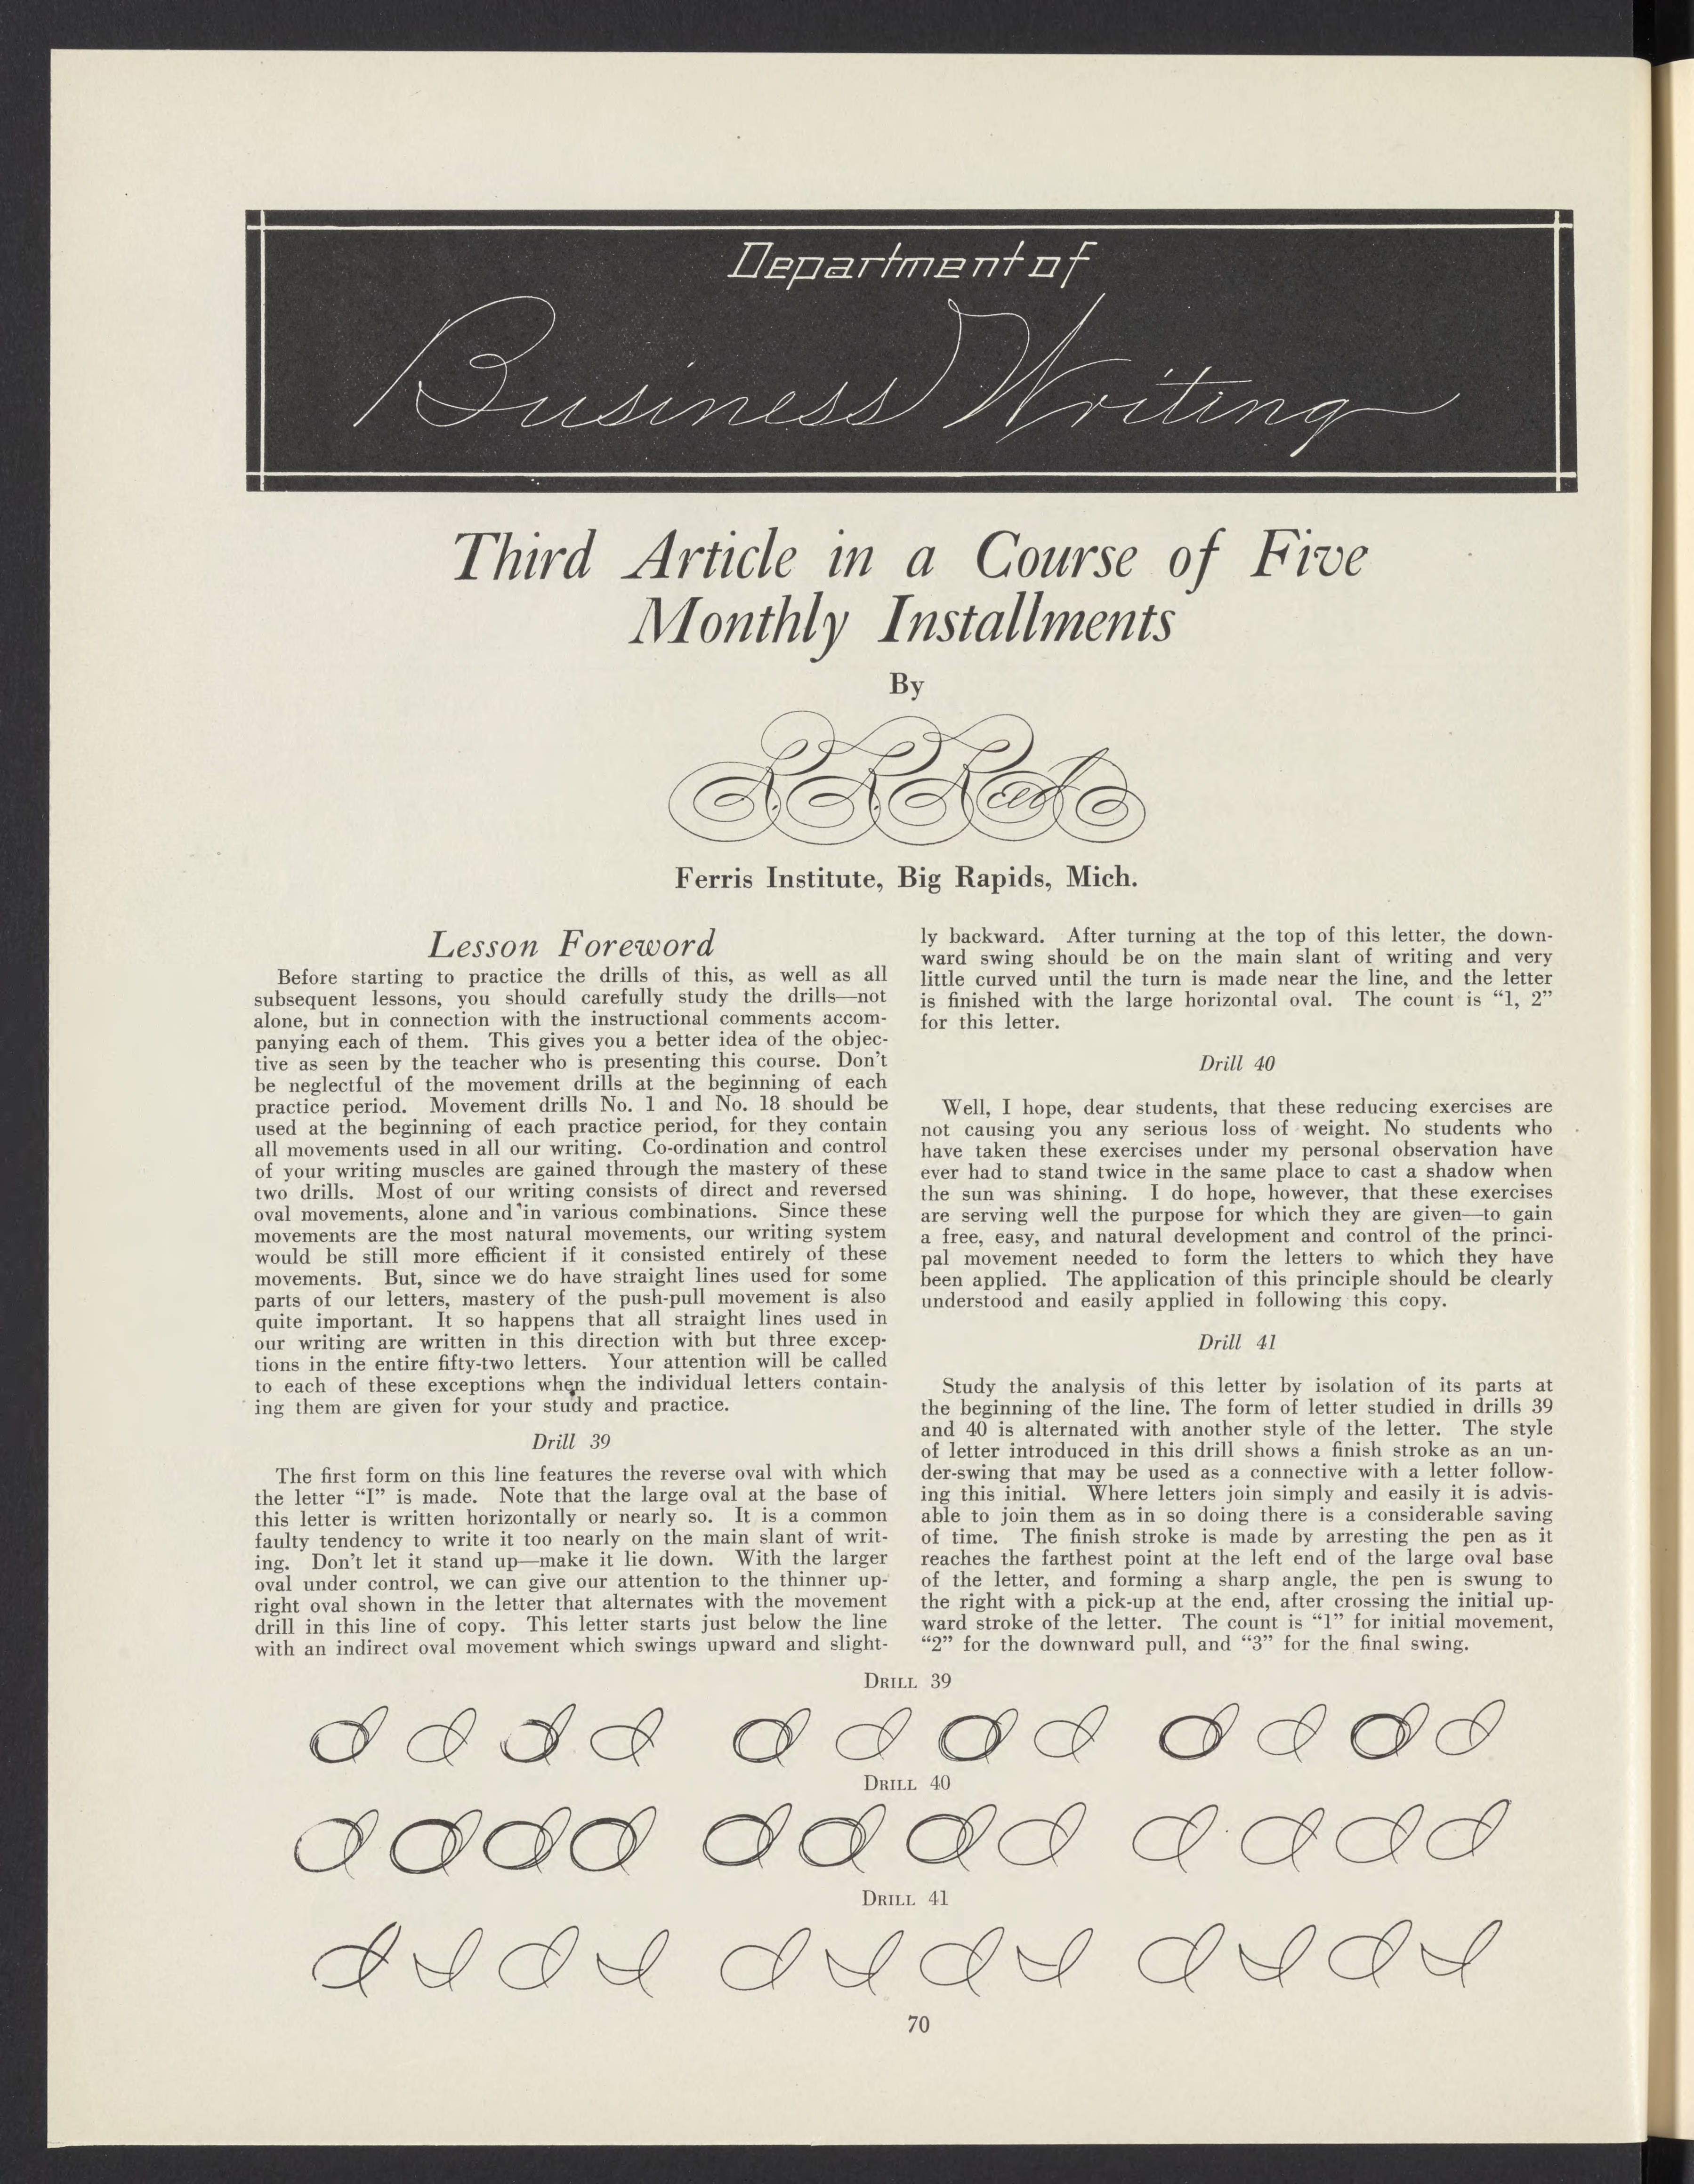 Department of
Business Writing
Third Article in a Course of Five
Monthly Installments
By
R. R. Reed
Ferris Institute, Big Rapids, Mich.
Lesson Foreword
Before starting to practice the drills of this, as well as all
subsequent lessons, you should carefully study the drills—not
alone, but in connection with the instructional comments accom-
panying each of them. This gives you a better idea of the objec-
tive as seen by the teacher who is presenting this course. Don't
be neglectful of the movement drills at the beginning of each
practice period. Movement drills No. 1 and No. 18 should be
used at the beginning of each practice period, for they contain
all movements used in all our writing. Co-ordination and control
of your writing muscles are gained through the mastery of these
two drills. Most of our writing consists of direct and reversed
oval movements, alone and in various combinations. Since these
movements are the most natural movements, our writing system
would be still more efficient if it consisted entirely of these
movements. But, since we do have straight lines used for some
parts of our letters, mastery of the push-pull movement is also
quite important. It so happens that all straight lines used in
our writing are written in this direction with but three excep-
tions in the entire fifty-two letters. Your attention will be called
to each of these exceptions when the individual letters contain-
ing them are given for your study and practice.
Drill 39
The first form on this line features the reverse oval with which
the letter “I” is made. Note that the large oval at the base of
this letter is written horizontally or nearly so. It is a common
faulty tendency to write it too nearly on the main slant of writ-
ing. Don't let it stand up—make it lie down. With the larger
oval under control, we can give our attention to the thinner up-
right oval shown in the letter that alternates with the movement
drill in this line of copy. This letter starts just below the line
with an indirect oval movement which swings upward and slight-
ly backward. After turning at the top of this letter, the down-
ward swing should be on the main slant of writing and very
little curved until the turn is made near the line, and the letter
is finished with the large horizontal oval. The count is “1, 2”
for this letter.
Drill 40
Well, I hope, dear students, that these reducing exercises are
not causing you any serious loss of weight. No students who
have taken these exercises under my personal observation have
ever had to stand twice in the same place to cast a shadow when
the sun was shining. I do hope, however, that these exercises
are serving well the purpose for which they are given—to gain
a free, easy, and natural development and control of the princi-
pal movement needed to form the letters to which they have
been applied. The application of this principle should be clearly
understood and easily applied in following this copy.
Drill 41
Study the analysis of this letter by isolation of its parts at
the beginning of the line. The form of letter studied in drills 39
and 40 is alternated with another style of the letter. The style
of letter introduced in this drill shows a finish stroke as an un-
der-swing that may be used as a connective with a letter follow-
ing this initial. Where letters join simply and easily it is advis-
able to join them as in so doing there is a considerable saving
of time. The finish stroke is made by arresting the pen as it
reaches the farthest point at the left end of the large oval base
of the letter, and forming a sharp angle, the pen is swung to
the right with a pick-up at the end, after crossing the initial up-
ward stroke of the letter. The count is “1” for initial movement,
“2” for the downward pull, and “3” for the final swing.
DRILL 39
I I I I I I I I I I I I
DRILL 40
I I I I I I I I I I I I
DRILL 41
I I I I I I I I I I I I
70